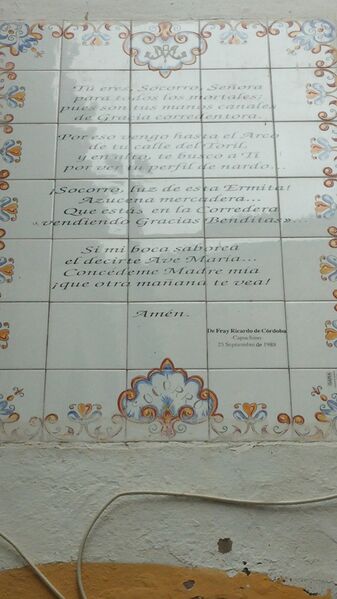 Tú eres, Socorro, Señora
para todos los mortales;
pues son tus manos canales
de Gracia corredentora.
Por eso vengo hasta el Arco
de tu calle del Toril,
y en alto, te busco a Ti
por ver tu perfil de nardo...
¡Socorro, luz de esta Ermita!
Azucena mercadera...
Que estás en la Corredera
«vendiendo Gracias Benditas»
Si mi boca saborea
el decirte Ave María...
Concédeme Madre mía
¡que otra mañana te vea!
Amén.
De Fray Ricardo de Córdoba
Capuchino
25 Septiembre de 1988